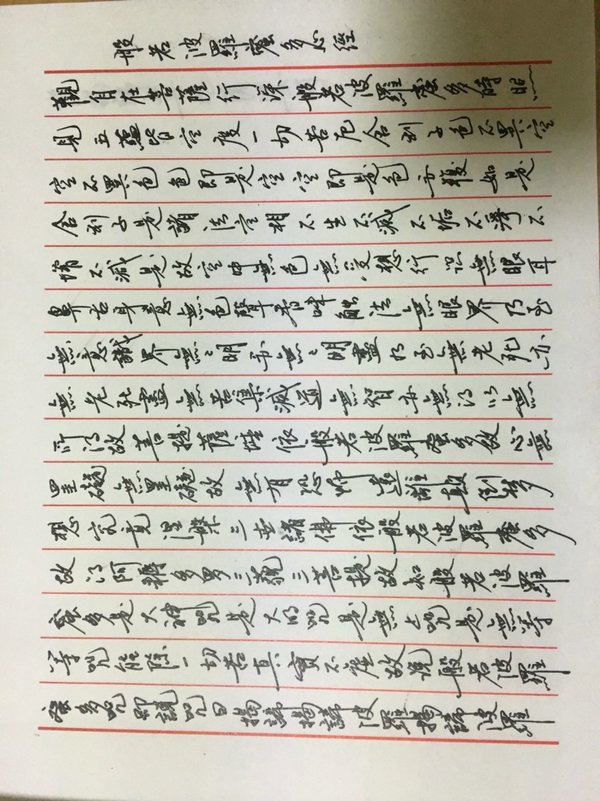 般若波羅蜜多心經
觀自在菩薩行深般若波羅蜜多時照
見五蘊皆空度一切苦厄舍利子色不異空
空不異色色即是空空即是色亦複如是
舍利子是諸法空相不生不滅不垢不淨不
增不減是故空中無色無受想行識無眼耳
鼻舌身意無色聲香味觸法無眼界乃至
無意識界無々明亦無々明盡乃至無老死亦
無老死盡無苦集滅道無智亦無得以無
所得故菩提薩埵依般若波羅蜜多故心無
罣礙無罣礙故無有恐怖遠離顛倒夢
想究竟涅槃三世諸佛依般若波羅蜜多
故得阿耨多羅三藐三菩提故知般若波羅
蜜多是大神咒是大明咒是無上咒是無等
等咒能除一切苦真實不虛故說般若波羅
蜜多咒即說咒曰揭諦揭諦波羅揭諦波羅